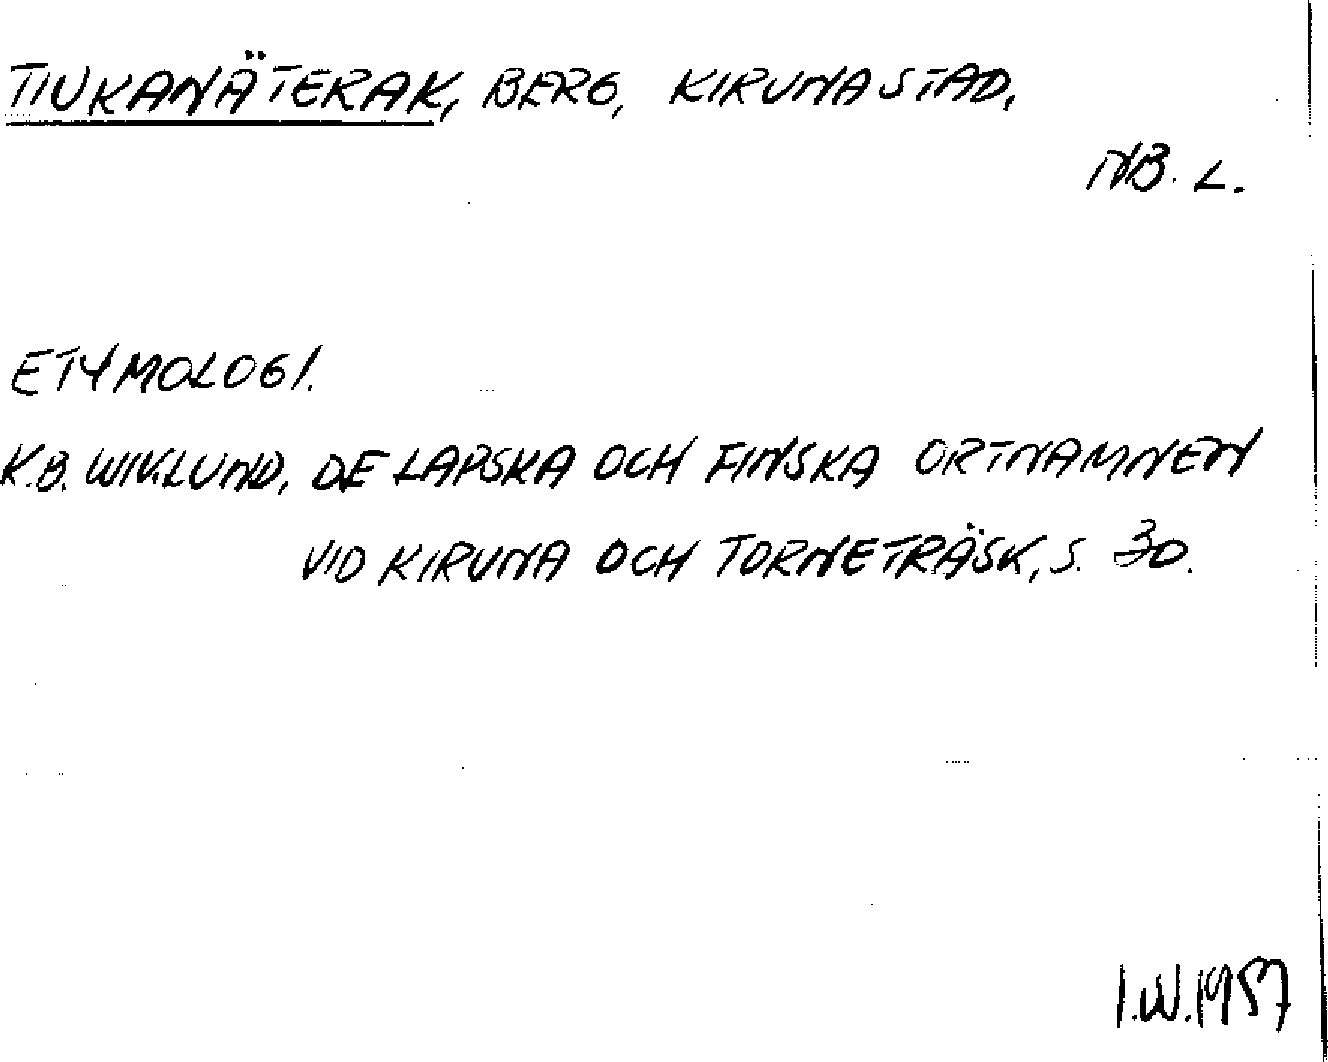 TIUKANÄTERAK, BERG, KIRUNA STAD,
NB. L.
ETYMOLOGI.
K.B. WIKLUND, DE LAPSKA OCH FINSKA ORTNAMNEN
VID KIRUNA OCH TORNETRÄSK, S. 30.
I.W. 1957